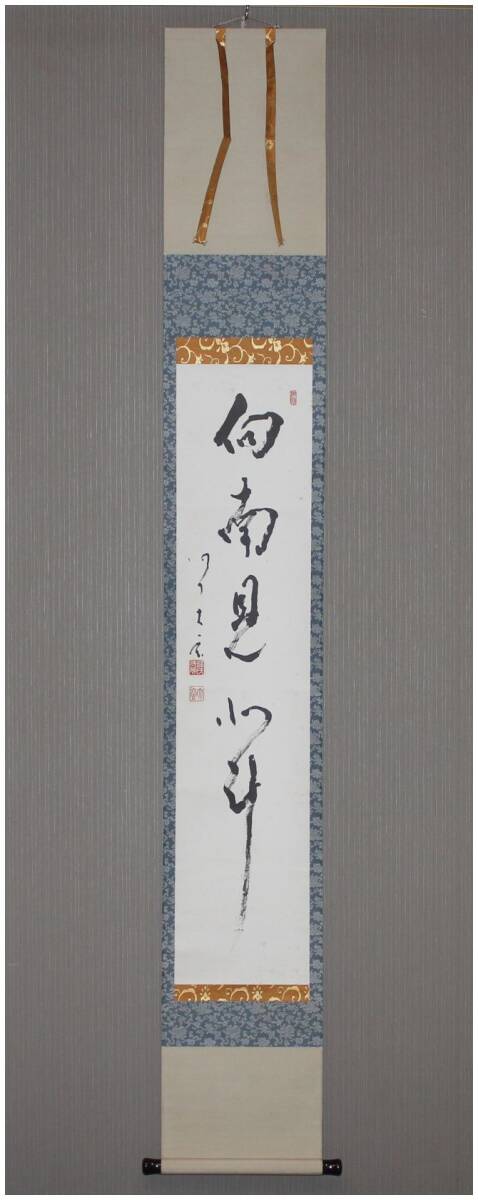 向南見北斗